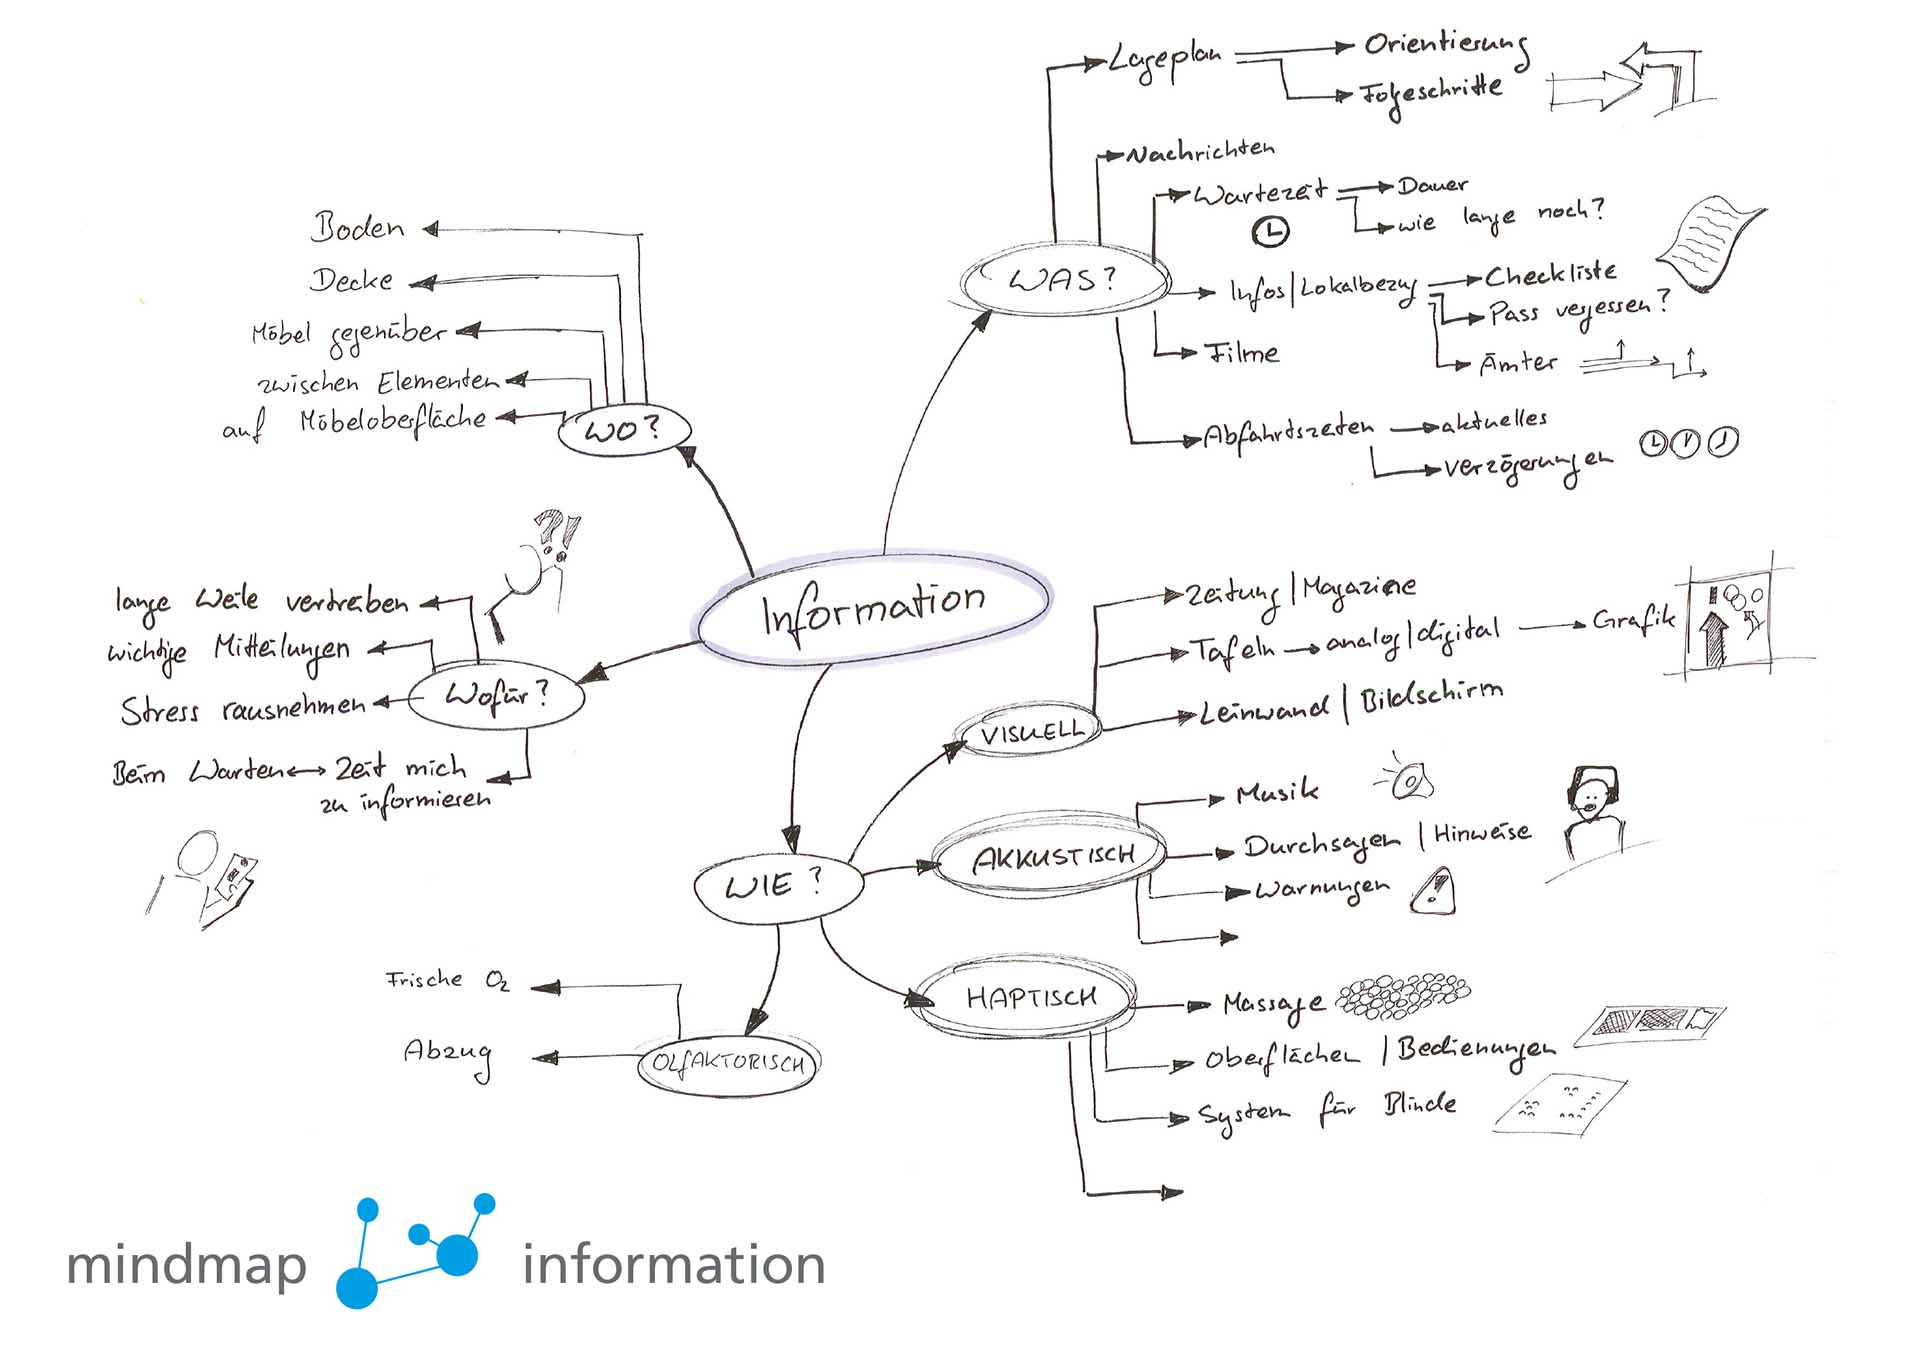 Lageplan
Orientierung
Folgeschritte
Nachrichten
Wartezeit
Dauer
wie lange noch?
WAS?
Infos/Lokalbezug
Checkliste
Pass vergessen?
Ämter
Filme
Abfahrtszeiten
aktuelles
verzögerungen
Boden
Decke
Möbel gegenüber
zwischen Elementen
auf Möbeloberfläche
WO?
?!
Information
lange Weile vertreiben
wichtige Mitteilungen
Stress rausnehmen
Wofür?
Beim Warten ↔ Zeit mich
zu informieren
Zeitung/Magazine
Tafeln → analog/digital
Grafik
Leinwand / Bildschirm
VISUELL
Musik
AKKUSTISCH
Durchsagen / Hinweise
Warnungen
!
WIE?
HAPTISCH
Massage
Oberflächen / Bedienungen
System für Blinde
Frische O2
Abzug
OLFAKTORISCH
mindmap information